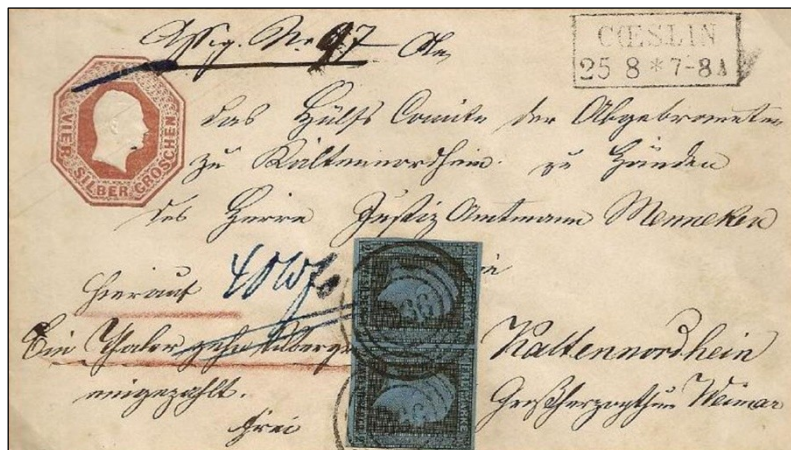 Assig. No. 97 An
CŒSLIN
25 8 * 7-8 A
VIER SILBER GROSCHEN
das Hülfs Comite der Abgebrannten
zu Kaltennordheim. zu Händen
des Herrn Justiz Amtmann Menneken
hierauf
Ein Thaler zehn Silbergr
Kaltennordheim
eingezahlt.
Großherzogthum Weimar
frei